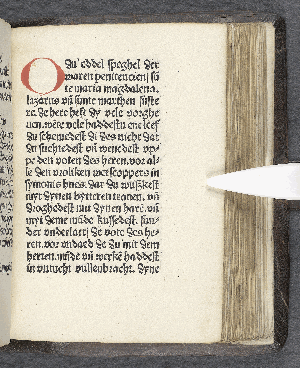 O Du eddel speghel der
waren penitencien sū
te maria magdalena.
lazarus vn̄ sunte marthen süste
re. de here heft dy vele vorghe
uen. wēte vele haddestu ene lef
du schemedest di des nicht dat
du suchtedest vn̄ wenedest vp
pe den voten des heren. vor al
le den vroliken wertscoppers in
symonis huse. dar du wusschest
myt dynen bytteren tranen. vn̄
droghedest mit dynen harē. vn̄
myt deme mūde kussedest. sun
der vnderlatē de vote des he
ren. vor vndaed de du mit dem
herten. mūde vn̄ werkē haddest
in vntucht vullenbracht. dyne